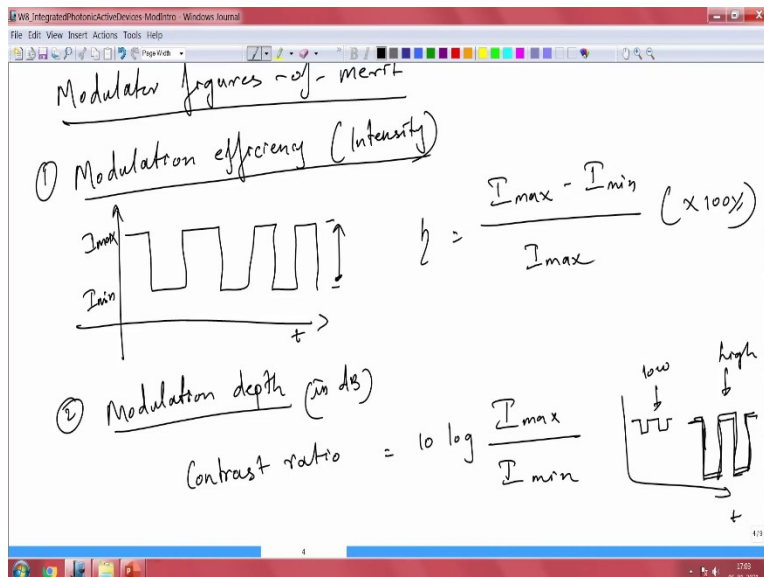 W8_IntegratedPhotonicActiveDevices-ModIntro - Windows Journal
File Edit View Insert Actions Tools Help
Page Width
B I
Modulator figures-of-merit
① Modulation efficiency (Intensity)
Imax
Imin
t
η = Imax - Imin / Imax (×100%)
② Modulation depth (in dB)
Contrast ratio = 10 log Imax / Imin
low
high
t
4/9
4
17:03